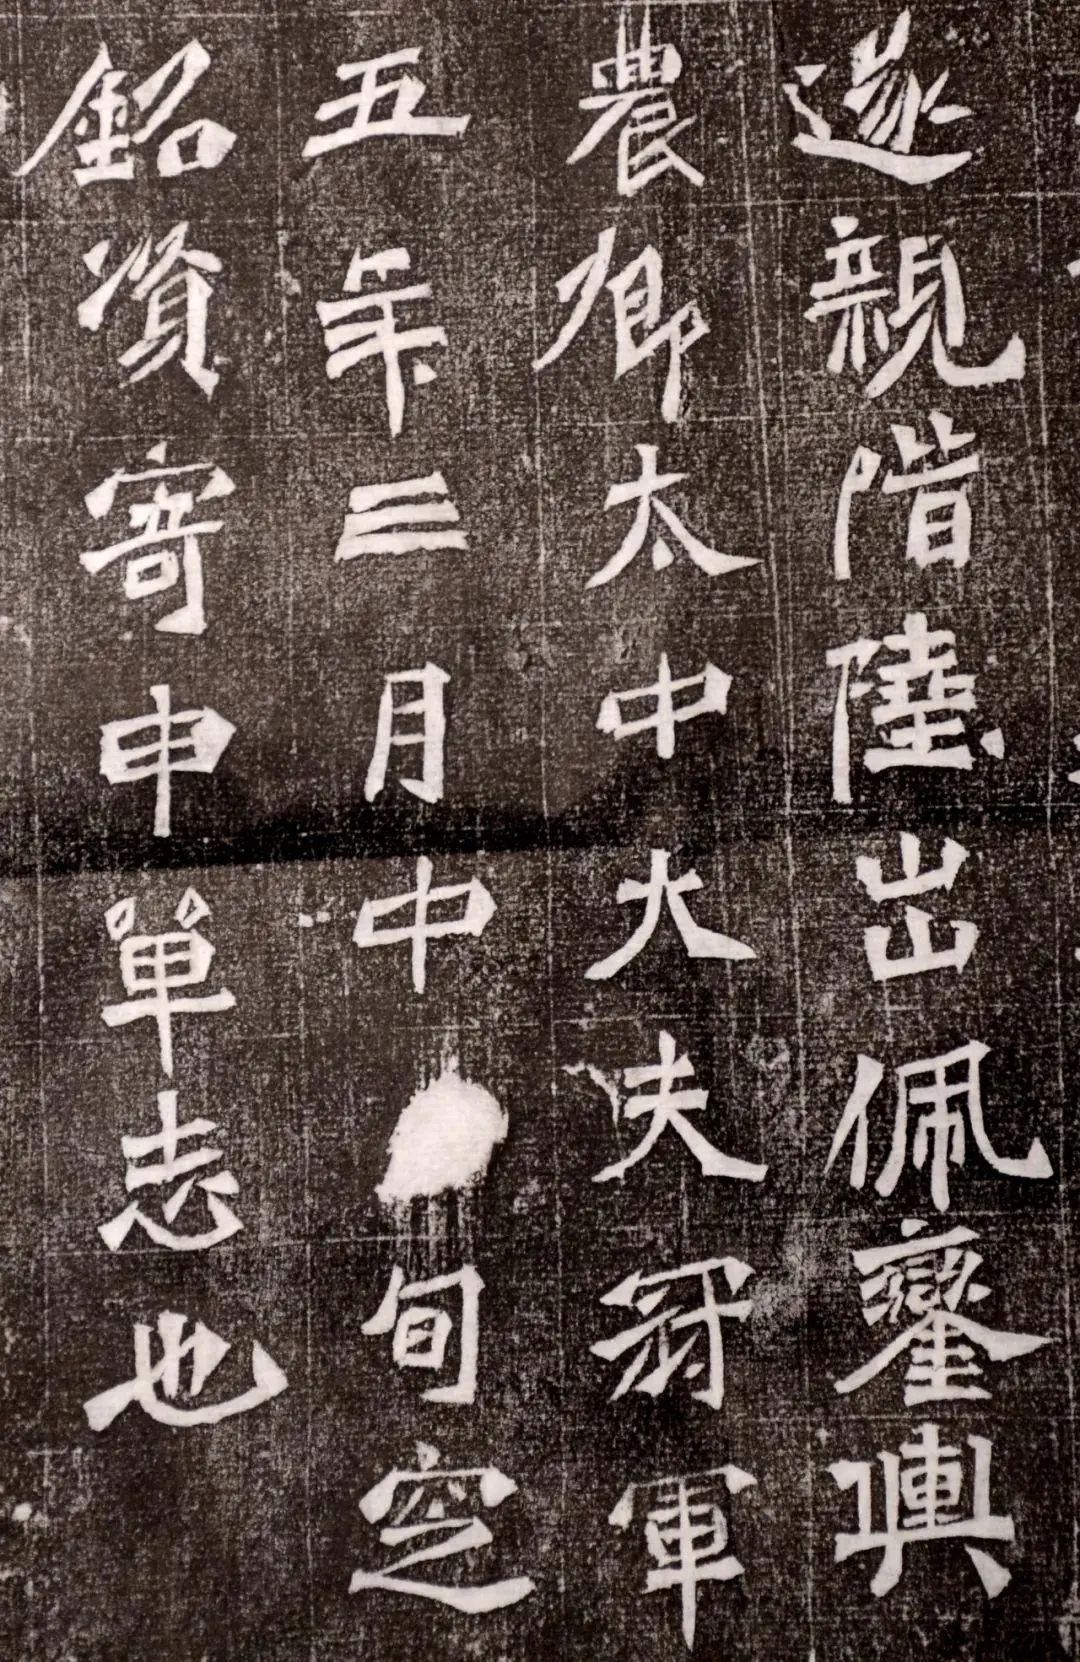 遂親階陛出佩鑾輿
農卿太中大夫冠軍
五年三月中旬空
銘資寄申單志也